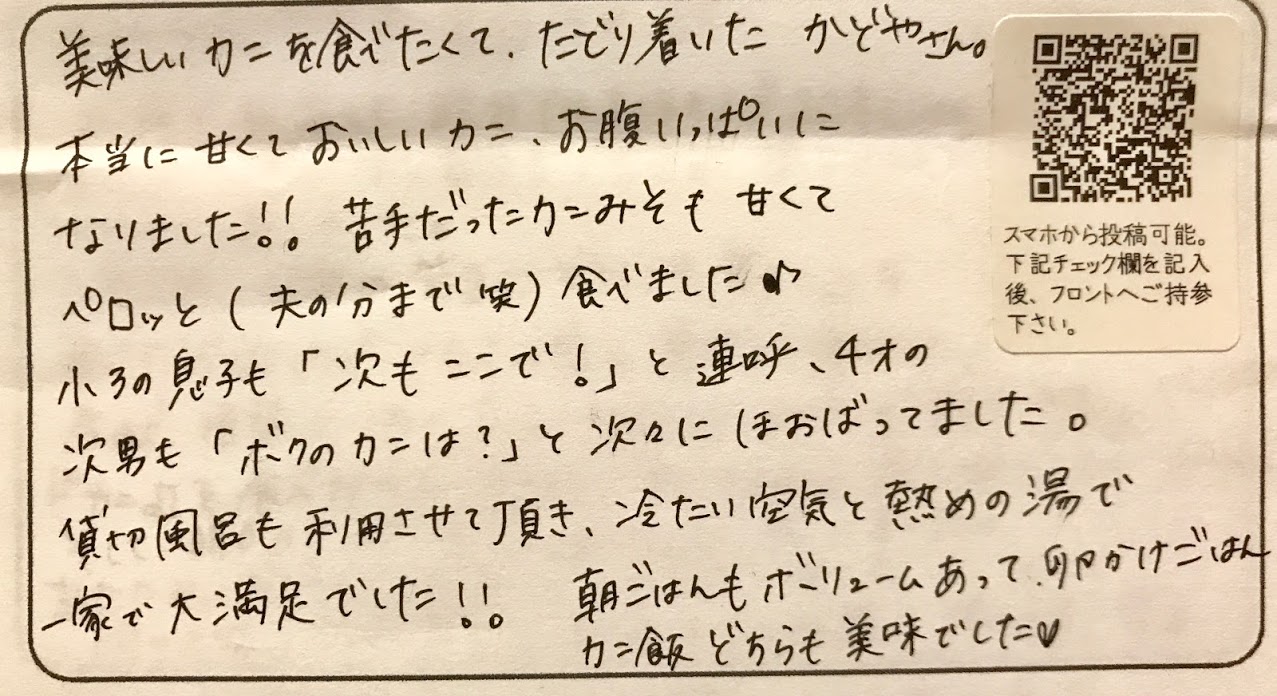 美味しいカニを食べたくて、たどり着いた かどやさん。
本当に甘くておいしいカニ、お腹いっぱいに
なりました!! 苦手だったカニみそも 甘くて
ペロッと(夫の分まで笑)食べました♪
小3の息子も「次もここで!」と連呼、4才の
次男も「ボクのカニは?」と次々にほおばってました。
貸切風呂も利用させて頂き、冷たい空気と熱めの湯で
一家で大満足でした!! 朝ごはんもボリュームあって、卵かけごはん
カニ飯どちらも美味でした♥
スマホから投稿可能。
下記チェック欄を記入
後、フロントへご持参
下さい。